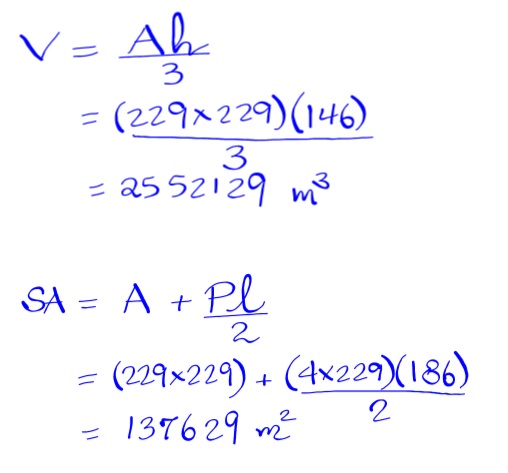 V = Ah/3
= (229×229)(146)/3
= 2552129 m³
SA = A + Pl/2
= (229×229) + (4×229)(186)/2
= 137629 m²